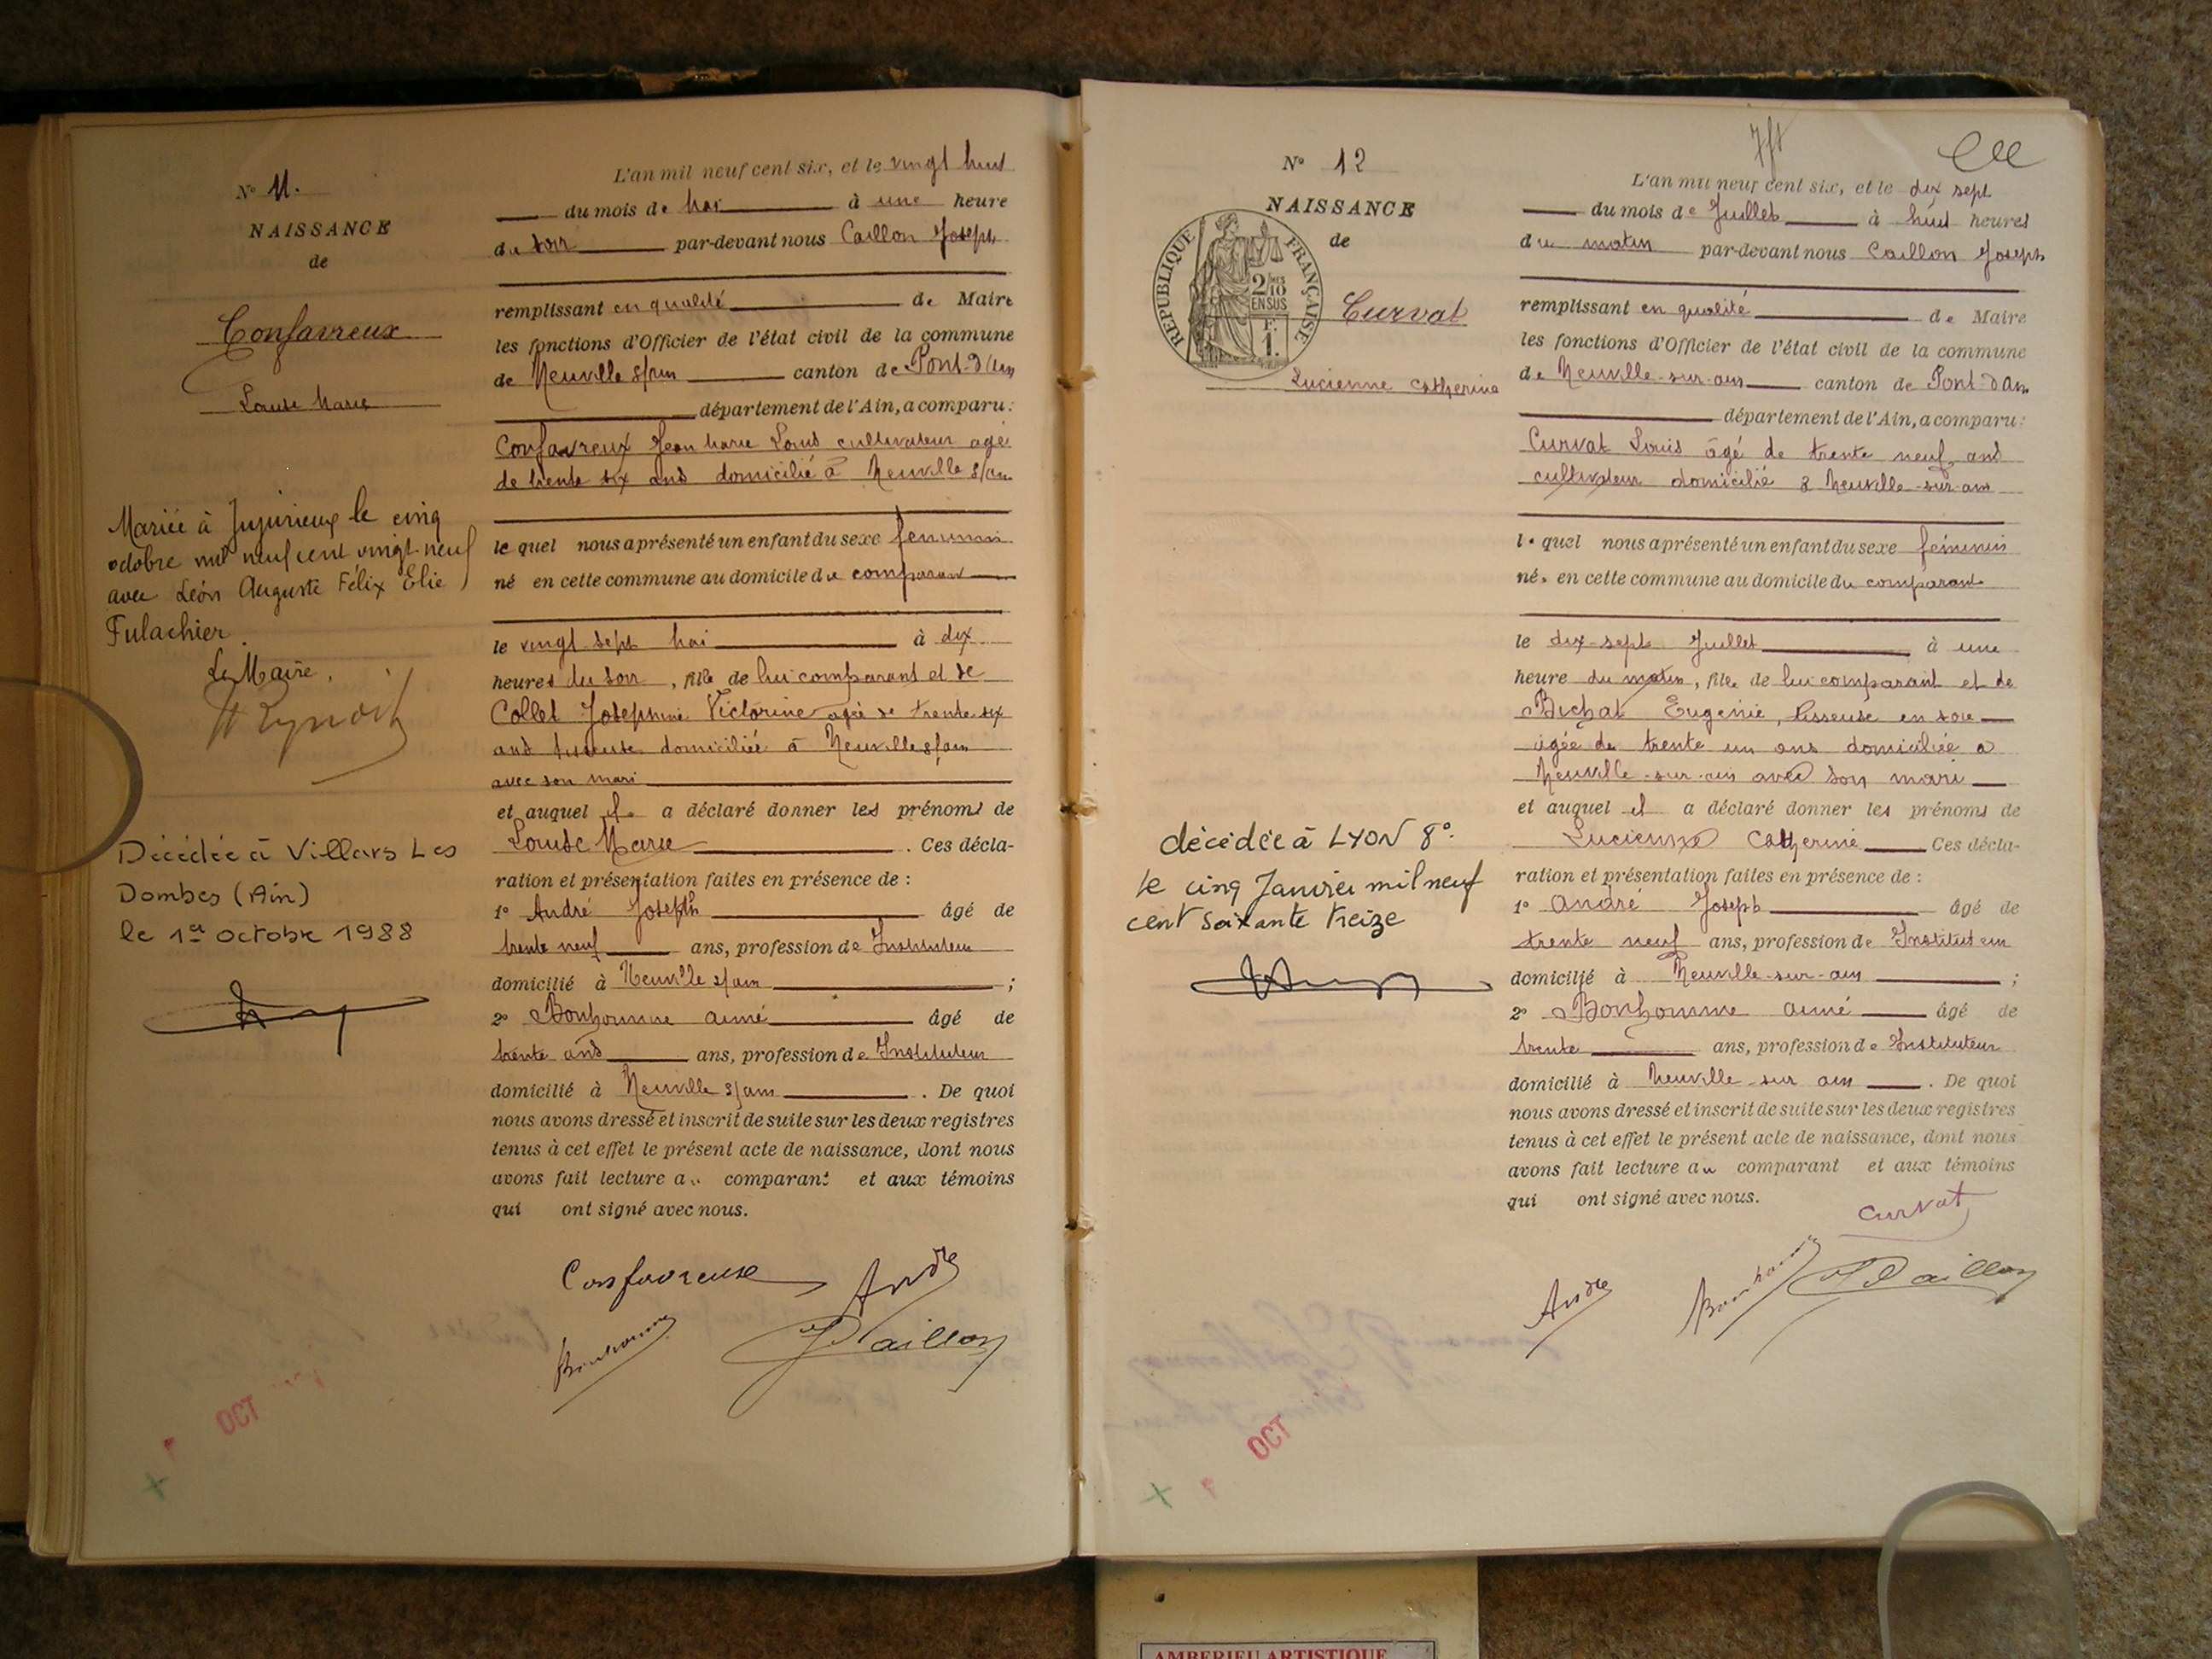 N° 11.
NAISSANCE
de
Confavreux
Louise Marie
Mariée à Jujurieux le cinq
octobre mil neuf cent vingt-neuf
avec Léon Auguste Félix Elie
Fulachier.
Le Maire,
Décédée à Villars Les
Dombes (Ain)
le 1er octobre 1988
L'an mil neuf cent six, et le vingt huit
du mois de Mai à une heure
du soir par-devant nous Caillon Joseph
remplissant en qualité de Maire
les fonctions d'Officier de l'état civil de la commune
de Neuville s/ain canton de Pont-d'Ain
département de l'Ain, a comparu:
Confavreux Jean Marie Louis cultivateur agé
de trente six ans domicilié à Neuville s/ain
le quel nous a présenté un enfant du sexe féminin
né en cette commune au domicile du comparant
le vingt sept Mai à dix
heures du soir, fille de lui comparant et de
Collet Joséphine Victorine agée de trente six
ans tisseuse domiciliée à Neuville s/ain
avec son mari
et auquel il a déclaré donner les prénoms de
Louise Marie. Ces décla-
ration et présentation faites en présence de :
1° André Joseph âgé de
trente neuf ans, profession de Instituteur
domicilié à Neuville s/ain ;
2° Bonhomme aimé âgé de
trente ans ans, profession de Instituteur
domicilié à Neuville s/ain. De quoi
nous avons dressé et inscrit de suite sur les deux registres
tenus à cet effet le présent acte de naissance, dont nous
avons fait lecture au comparant et aux témoins
qui ont signé avec nous.
Confavreux André
Bonhomme J Caillon
OCT
N° 12
NAISSANCE
de
RÉPUBLIQUE FRANÇAISE
2/10
EN SUS
F.
1.
Curvat
Lucienne Catherine
décédée à LYON 8°
le cinq Janvier mil neuf
cent soixante treize
L'an mil neuf cent six, et le dix sept
du mois de Juillet à huit heures
du matin par-devant nous Caillon Joseph
remplissant en qualité de Maire
les fonctions d'Officier de l'état civil de la commune
de Neuville-sur-ain canton de Pont-d'Ain
département de l'Ain, a comparu:
Curvat Louis âgé de trente neuf ans
cultivateur domicilié à Neuville-sur-ain
le quel nous a présenté un enfant du sexe féminin
né, en cette commune au domicile du comparant
le dix-sept Juillet à une
heure du matin, fille de lui comparant et de
Bichat Eugénie, tisseuse en soie
agée de trente un ans domiciliée à
Neuville-sur-ain avec son mari
et auquel il a déclaré donner les prénoms de
Lucienne Catherine Ces décla-
ration et présentation faites en présence de :
1° André Joseph âgé de
trente neuf ans, profession de Instituteur
domicilié à Neuville-sur-ain ;
2° Bonhomme aimé âgé de
trente ans, profession de Instituteur
domicilié à Neuville-sur ain. De quoi
nous avons dressé et inscrit de suite sur les deux registres
tenus à cet effet le présent acte de naissance, dont nous
avons fait lecture au comparant et aux témoins
qui ont signé avec nous.
Curvat
André Bonhomme J Caillon
OCT
AMBERIEU ARTISTIQUE